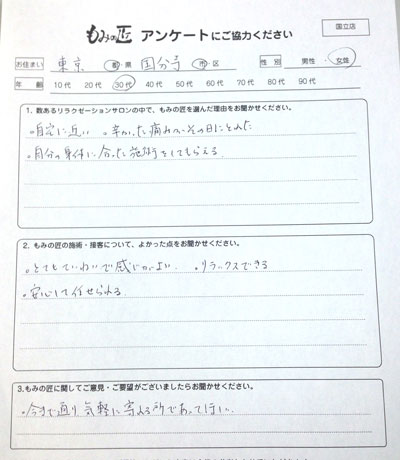 国立店
もみの匠 アンケートにご協力ください
お住まい 東京 都・県 国分寺 市・区 性別 男性・女性
年齢 10代 20代 30代 40代 50代 60代 70代 80代 90代
1. 数あるリラクゼーションサロンの中で、もみの匠を選んだ理由をお聞かせください。
・自宅に近い ・辛かった痛みがその日にとれた
・自分の身体に合った施術をしてもらえる
2. もみの匠の施術・接客について、よかった点をお聞かせください。
・とてもていねいで感じがよい ・リラックスできる
・安心して任せられる
3.もみの匠に関してご意見・ご要望がございましたらお聞かせください。
・今まで通り気軽に寄れる所であってほしい